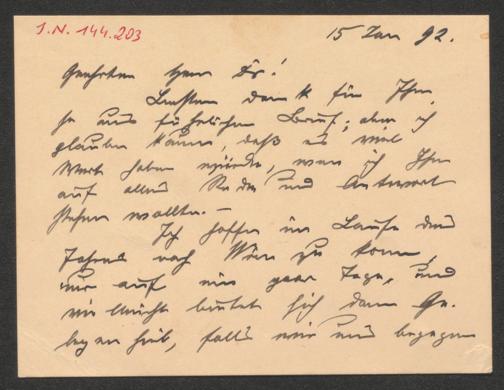 J.N. 144.203
15 Jan 92.
Geehrter Herr Dr!
Besten Dank für Ihren
so ausführlichen Brief; aber ich
glaube kaum, daß es viel
Wert haben würde, wenn ich Ihnen
auf alles Rede und Antwort
stehen wollte. –
Ich hoffe im Laufe des
Jahres nach Wien zu kommen,
nur auf ein paar Tage, und
vielleicht bietet sich dann Ge-
legenheit, falls wir uns begegnen